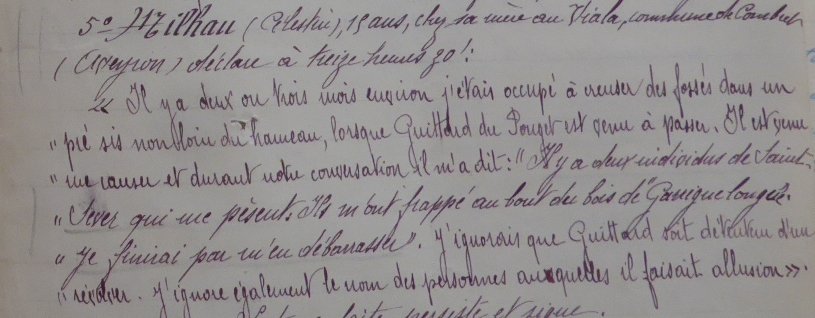 5º Milhau (Célestin), 19 ans, chez sa mère au Viala, commune de Combret
(Aveyron) déclare à treize heures 30' :
« Il y a deux ou trois mois environ j'étais occupé à creuser des fossés dans un
" pré sis non loin du hameau, lorsque Guittard du Pouget est venu à passer. Il est venu
" me causer et durant notre conversation il m'a dit : "Il y a deux individus de Saint-
" Sever qui me pèsent. Ils m'ont frappé au bout du bois de "Garrigue longue".
" Je finirai par m'en débarrasser". J'ignorais que Guittard soit détenteur d'un
" révolver. J'ignore également le nom des personnes auxquelles il faisait allusion ».
faite persiste et signe.